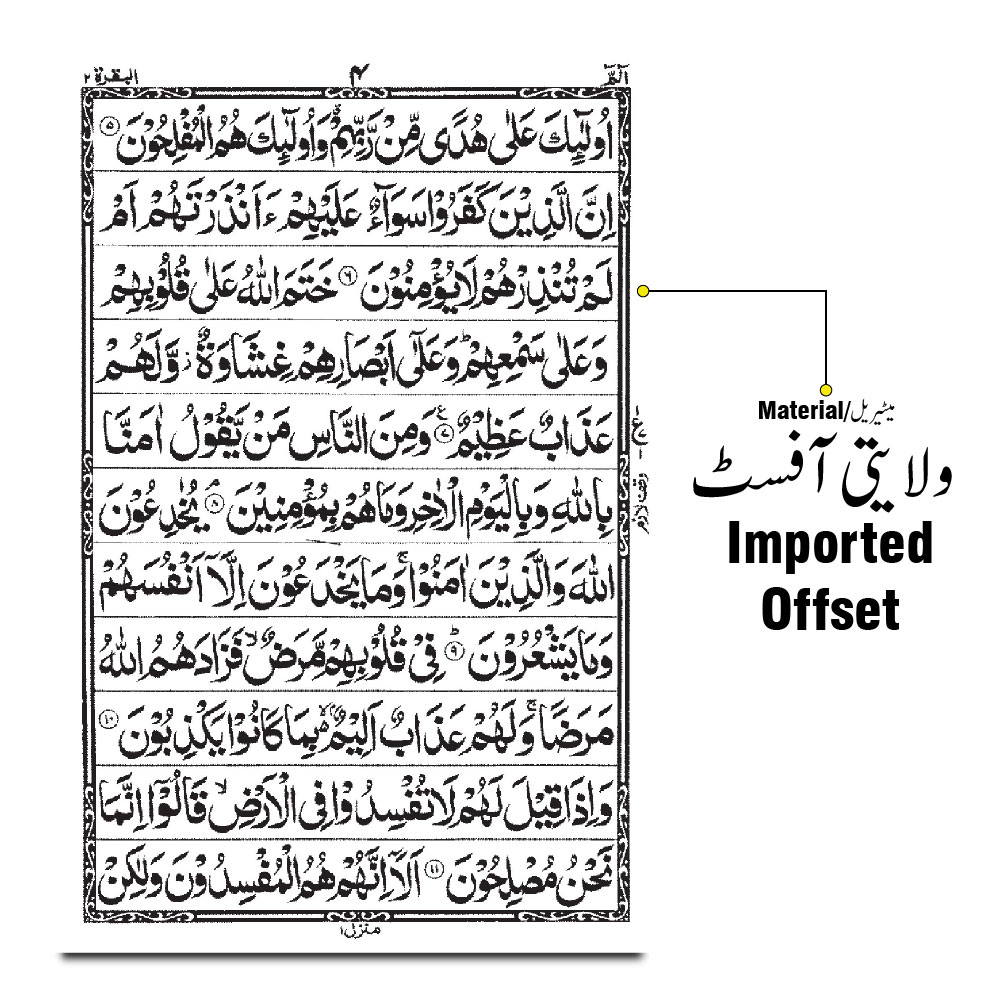 الٓمّٓ ۴ البقرة ۲
اُولٰٓئِكَ عَلٰى هُدًى مِّنْ رَّبِّهِمْ ۗ وَاُولٰٓئِكَ هُمُ الْمُفْلِحُوْنَ ۵
اِنَّ الَّذِيْنَ كَفَرُوْا سَوَآءٌ عَلَيْهِمْ ءَاَنْذَرْتَهُمْ اَمْ
لَمْ تُنْذِرْهُمْ لَا يُؤْمِنُوْنَ ۶ خَتَمَ اللّٰهُ عَلٰى قُلُوْبِهِمْ
وَعَلٰى سَمْعِهِمْ ؕ وَعَلٰٓى اَبْصَارِهِمْ غِشَاوَةٌ ز وَّلَهُمْ
عَذَابٌ عَظِيْمٌ ۷ ع وَمِنَ النَّاسِ مَنْ يَّقُوْلُ اٰمَنَّا
بِاللّٰهِ وَبِالْيَوْمِ الْاٰخِرِ وَمَا هُمْ بِمُؤْمِنِيْنَ ۘ ۸ يُخٰدِعُوْنَ
اللّٰهَ وَالَّذِيْنَ اٰمَنُوْا ۚ وَمَا يَخْدَعُوْنَ اِلَّآ اَنْفُسَهُمْ
وَمَا يَشْعُرُوْنَ ؕ ۹ فِيْ قُلُوْبِهِمْ مَّرَضٌ ۙ فَزَادَهُمُ اللّٰهُ
مَرَضًا ۚ وَلَهُمْ عَذَابٌ اَلِيْمٌ ۢ ۙ بِمَا كَانُوْا يَكْذِبُوْنَ ۱۰
وَاِذَا قِيْلَ لَهُمْ لَا تُفْسِدُوْا فِى الْاَرْضِ ۙ قَالُوْٓا اِنَّمَا
نَحْنُ مُصْلِحُوْنَ ۱۱ اَلَآ اِنَّهُمْ هُمُ الْمُفْسِدُوْنَ وَلٰكِنْ
منزل ۱
ع
وقف لازم
Material/میٹیریل
ولایتی آفسٹ
Imported
Offset